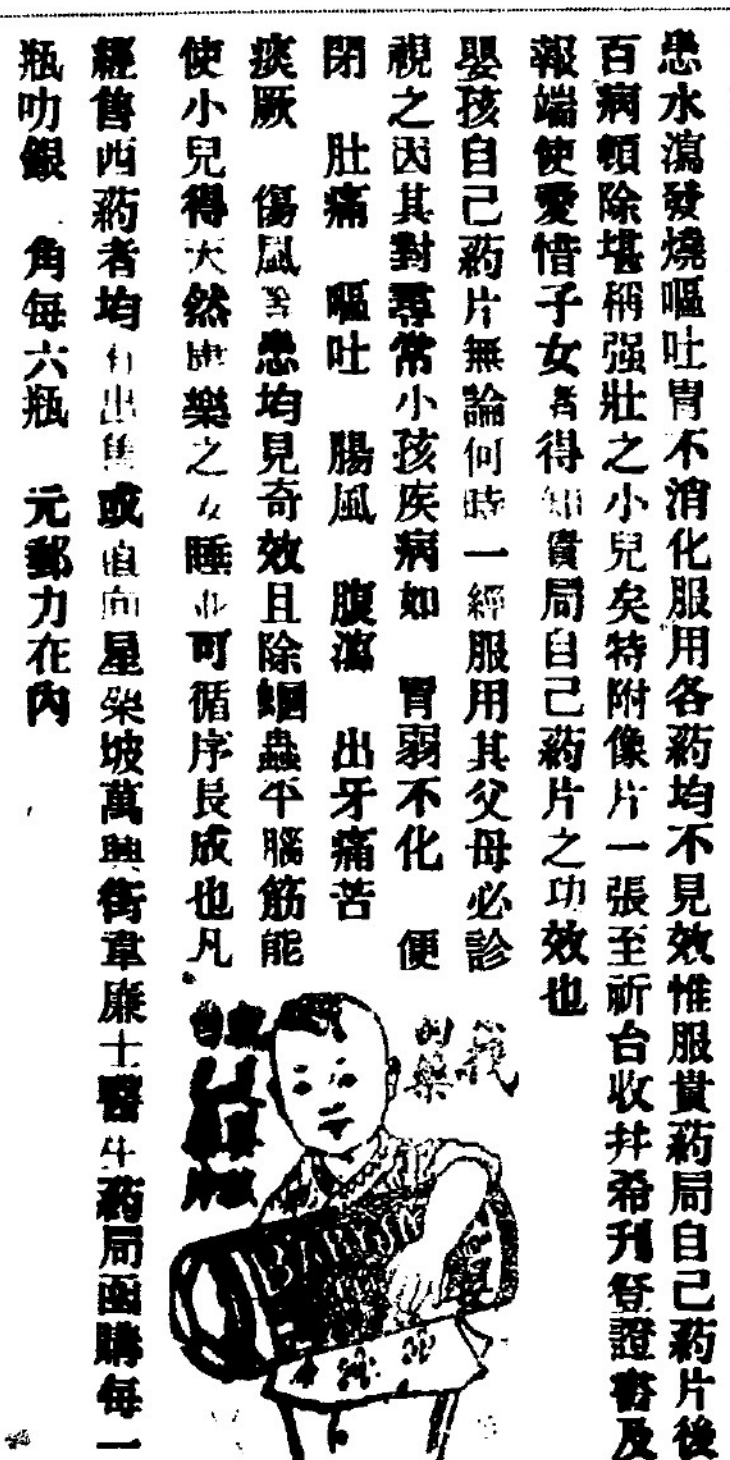 患水瀉發燒嘔吐胃不消化服用各葯均不見效惟服貴葯局自己葯片後
百病頓除堪稱强壯之小兒矣特附像片一張至祈台收并希刋登證書及
報端使愛惜子女者得知貴局自己葯片之功效也
嬰孩自己葯片無論何時一經服用其父母必診
視之因其對尋常小孩疾病如 胃弱不化 便
閉 肚痛 嘔吐 腸風 腹瀉 出牙痛苦
痰厥 傷風等患均見奇效且除蛔蟲平腦筋能
使小兒得天然康樂之安睡並可循序長成也凡
經售西葯者均有出售或直向星架坡萬興街韋廉士醫生葯局函購每一
瓶叻銀 角每六瓶 元郵力在內
我
的藥
BABY